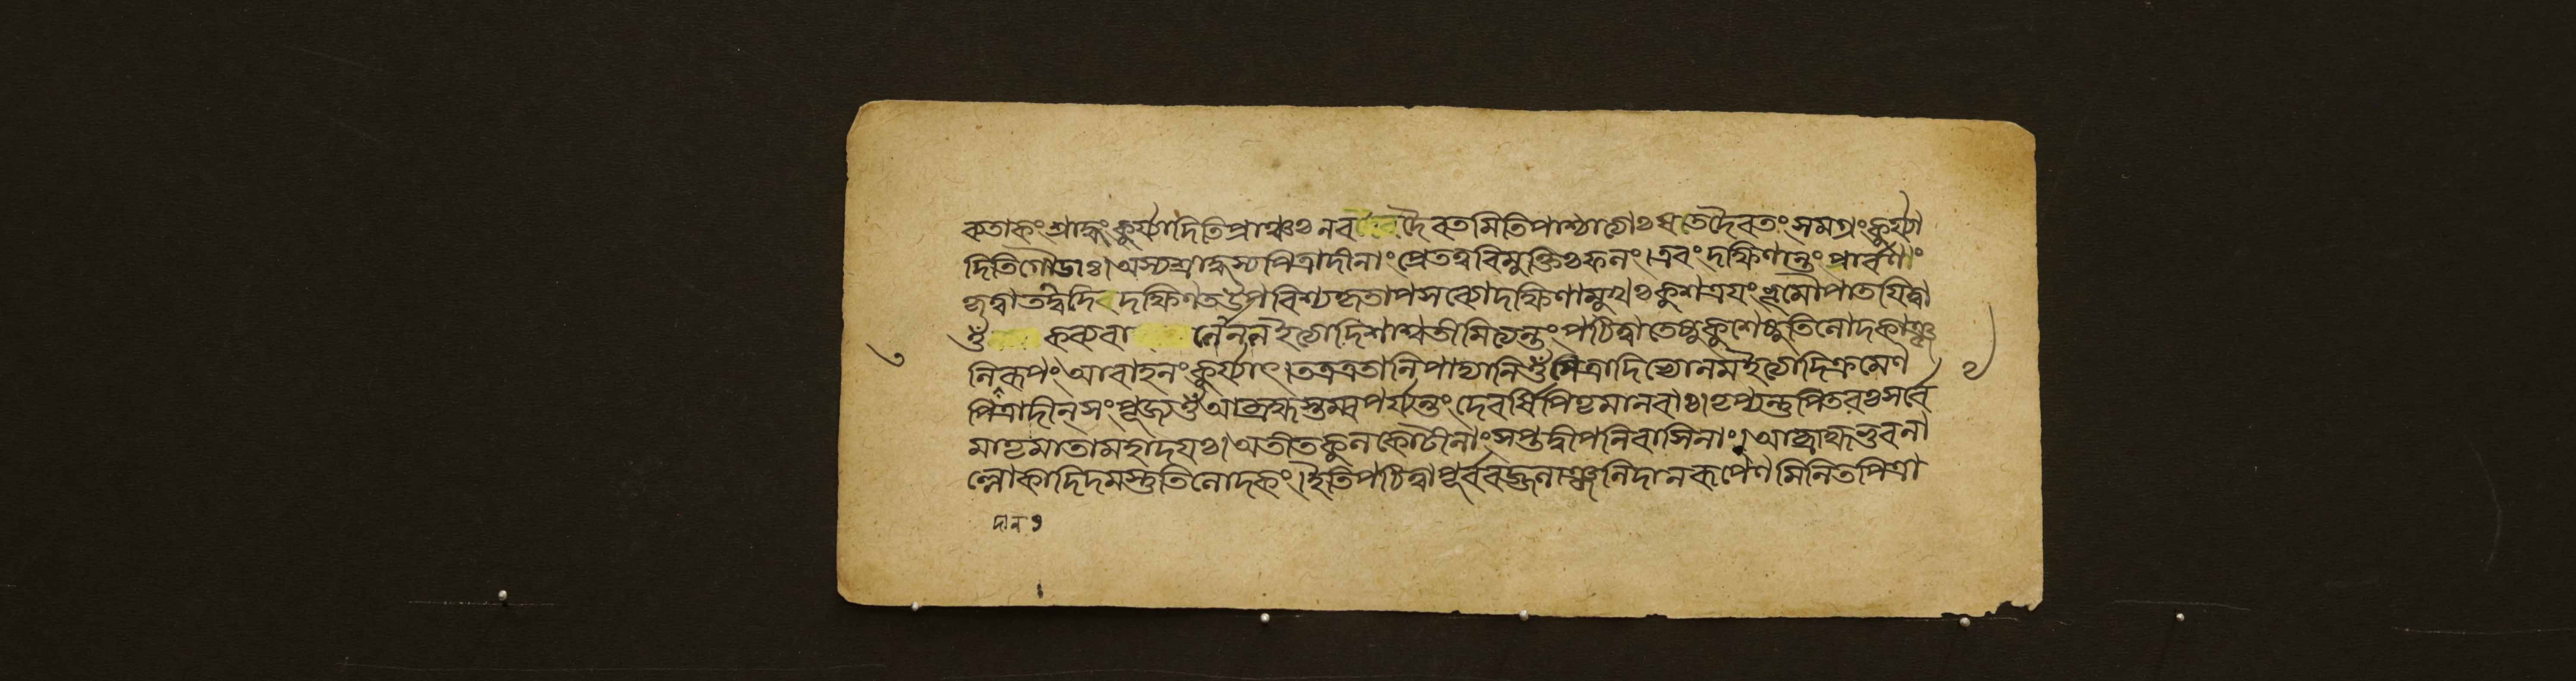 কতাহং শ্রাদ্ধং কুর্য্যাদিতিপ্রাঞ্চঃ নবদৈবতমিতিপাশ্চাত্যাঃ ষড্দৈবতং সমগ্রং কুর্য্যা
দিতিগৌডাঃ। অস্যশ্রাদ্ধস্যপিত্রাদীনাং প্রেতত্ববিমুক্তিঃ ফলং। এবং দক্ষিণান্তং পার্বণং
কৃত্বাতদ্বদেবদক্ষিণতউপবিশ্যকৃতাপসব্যোদক্ষিণামুখঃ কুশত্রয়ং ভূমৌপাতয়িত্বা
ওঁ কব্যবা ইত্যাদিশাশ্বতীমিত্যন্তং পঠিত্বাতেষুকুশেষুতিলোদকাঞ্জ
লিরূপং আবাহনং কুর্য্যাৎ। পাদ্যানিওঁপিত্রাদিভ্যোনমইত্যাদিক্রমেণ
পিত্রাদীন্ সংপূজ্যওঁআব্রহ্মস্তম্বপর্য্যন্তং দেবর্ষিপিতৃমানবাঃ। তৃপ্যন্তুপিতরঃ সর্বে
মাতৃমাতামহাদয়ঃ। অতীতকুলকোটীনাং সপ্তদ্বীপনিবাসিনাং। আব্রহ্মভুবনা
ল্লোকাদিদমস্তুতিলোদকং। ইতিপঠিত্বাপূর্ববজ্জলাঞ্জলিদানরূপেণমিলিতপিত্রা
দান
২